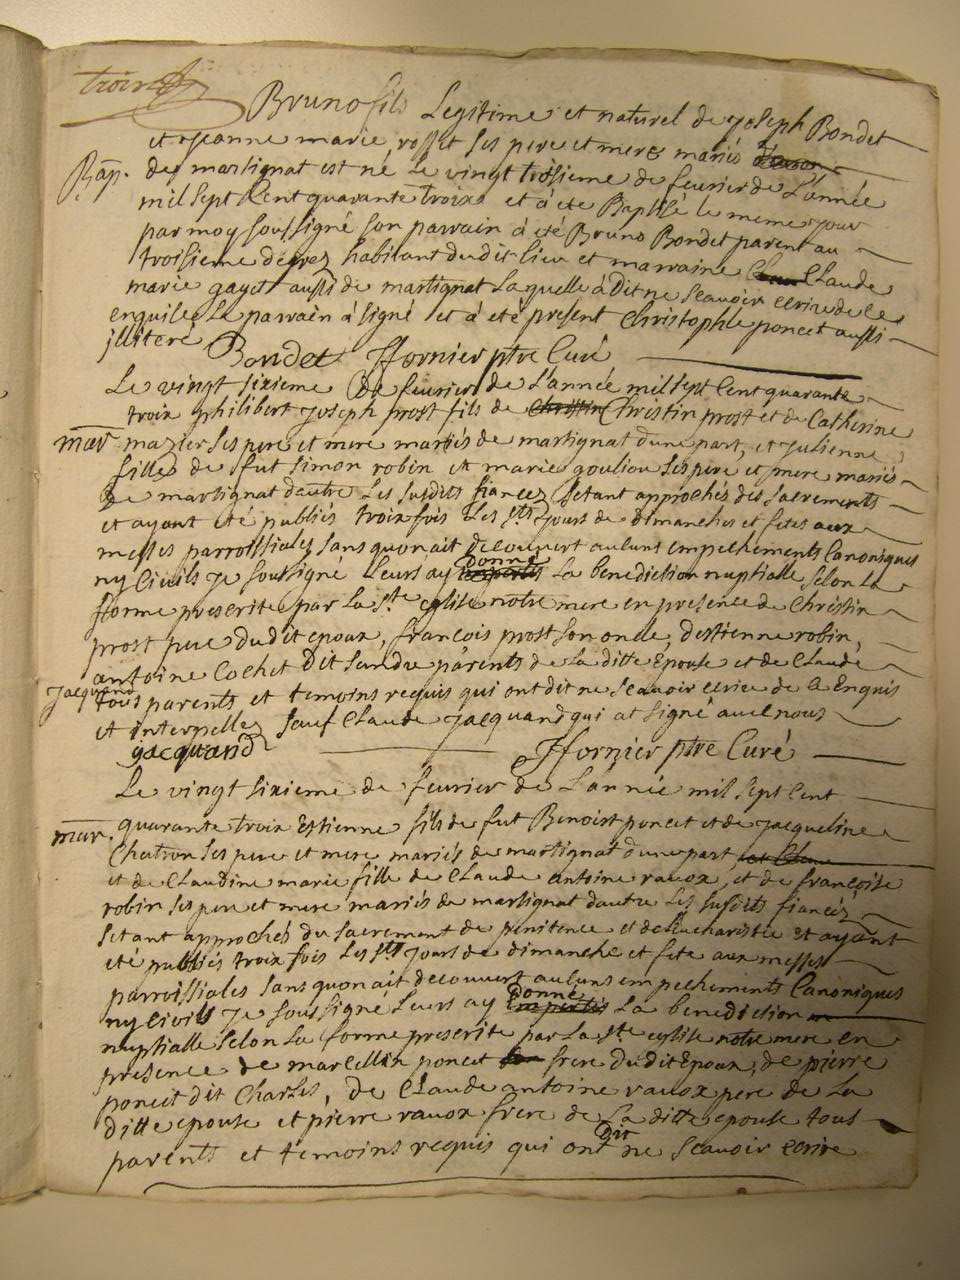 trois
Bruno fils Legitime et naturel de Joseph Bondet
et Jeanne marie rosset ses pere et meres mariés
Bap. de martignat est né Le vingt troisieme de feurier de L'année
mil sept Cent quarante troixs et à été Baptisé le meme jour
par moy soussigné son parrain à été Bruno Bondet parent au
troisieme degrez habitant dudit lieu et marraine Claude
marie gayet aussi de martignat Laquelle à Dit ne scauoir ecrire de ce
enquise Le parrain à signé et à été present Christophle poncet aussi
illiteré Bondet Jfornier ptre Curé
Le vingt sixieme de feurier de L'année mil sept Cent quarante
troix philibert Joseph prost fils de Christin prost et de Catherine
mar mazier ses pere et mere mariés de martignat d'une part, et Julienne
filles de fut simon robin et marie gouliou ses pere et mere mariés
de martignat d'autre Les susdits fiancez s'etant approchés des sacrements
et ayant eté publiés troix fois Les sts jours de dimanches et fetes aux
messes parroissiales sans quon ait decouuert aucuns empechements Canoniques
ny Ciuils Je soussigné Leurs ay donné La benediction nuptialle selon La
forme prescrite par La ste eglise notre mere en presence de Christin
prost pere dudit epoux, françois prost son oncle, d'estienne robin,
antoine Cochet Dit sandre parents de La ditte Epouse et de Claude
Jacquand tous parents et temoins requis qui ont dit ne scauoir ecrire de ce Enquis
et interpellez sauf Claude Jacquand qui at signé auec nous
jacquand Jfornier ptre Curé
Le vingt sixieme de feurier de L'année mil sept Cent
mar. quarante troix Estienne fils de fut Benoist poncet et de Jacqueline
Chatron ses pere et mere mariés de martignat d'une part
et de Claudine marie fille de Claude antoine rauox, et de françoise
robin ses pere et mere mariés de martignat d'autre Les susdits fiancés
s'etant approchés du sacrement de penitence et de L'eucharistie et ayant
eté publiés troix fois Les sts jours de dimanche et fete aux messes
parroissiales sans quon ait decouuert aucuns empechements Canoniques
ny Ciuils Je soussigné Leurs ay donné La benediction
nuptialle selon La forme prescrite par La ste eglise notre mere en
presence de marcellin poncet frere dudit Epoux, de pierre
poncet dit Charles, de Claude antoine rauox pere de La
ditte epouse et pierre rauox frere de La ditte epouse tous
parents et temoins requis qui ont Dit ne scauoir ecrire